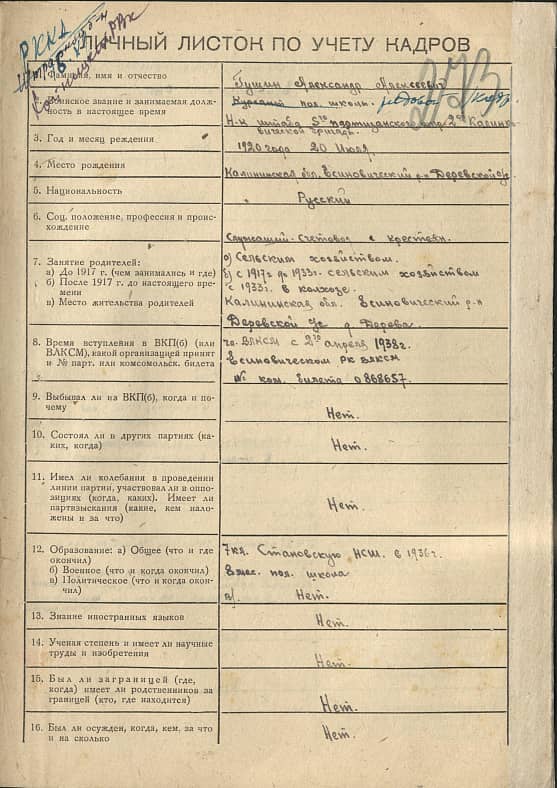 РККА
ЛИЧНЫЙ ЛИСТОК ПО УЧЕТУ КАДРОВ
1. Фамилия, имя и отчество
Пушин Александр Алексеевич
2. Воинское звание и занимаемая долж-
ность в настоящее время
Курсант пол. школы.
Н-к штаба 5ой партизанского отр. 2ой Калин
бригады.
3. Год и месяц рождения
1920 года 20 Июля.
4. Место рождения
Калининская обл. Есиновический р-н Деревской с/с
5. Национальность
Русский
6. Соц. положение, профессия и проис-
хождение
Служащий-счетовод с крестьян.
7. Занятие родителей:
а) До 1917 г. (чем занимались и где)
б) После 1917 г. до настоящего вре-
мени
в) Место жительства родителей
а) Сельским хозяйством.
б) с 1917г до 1933г. сельским хозяйством
с 1933г. в колхозе.
Калининская обл. Есиновический р-н
Деревской с/с д. Дерева.
8. Время вступления в ВКП(б) (или
ВЛКСМ), какой организацией принят
и № парт. или комсомольск. билета
чл. ВЛКСМ с 2го апреля 1938г.
Есиновическом РК ВЛКСМ
№ ком. билета 0868657.
9. Выбывал ли из ВКП(б), когда и по-
чему
Нет.
10. Состоял ли в других партиях (ка-
ких, когда)
Нет.
11. Имел ли колебания в проведении
линии партии, участвовал ли в оппо-
зициях (когда, каких). Имеет ли
партвзыскания (какие, кем нало-
жены и за что)
Нет.
12. Образование: а) Общее (что и где
окончил)
б) Военное (что и когда окончил)
в) Политическое (что и когда окон-
чил)
7 кл. Становскую НСШ. в 1936г.
8 мес. пол. школа
в). Нет.
13. Знание иностранных языков
Нет.
14. Ученая степень и имеет ли научные
труды и изобретения
Нет.
15. Был ли заграницей (где,
когда) имеет ли родственников за
границей (кто, где находится)
Нет.
16. Был ли осужден, когда, кем, за что
и на сколько
Нет.